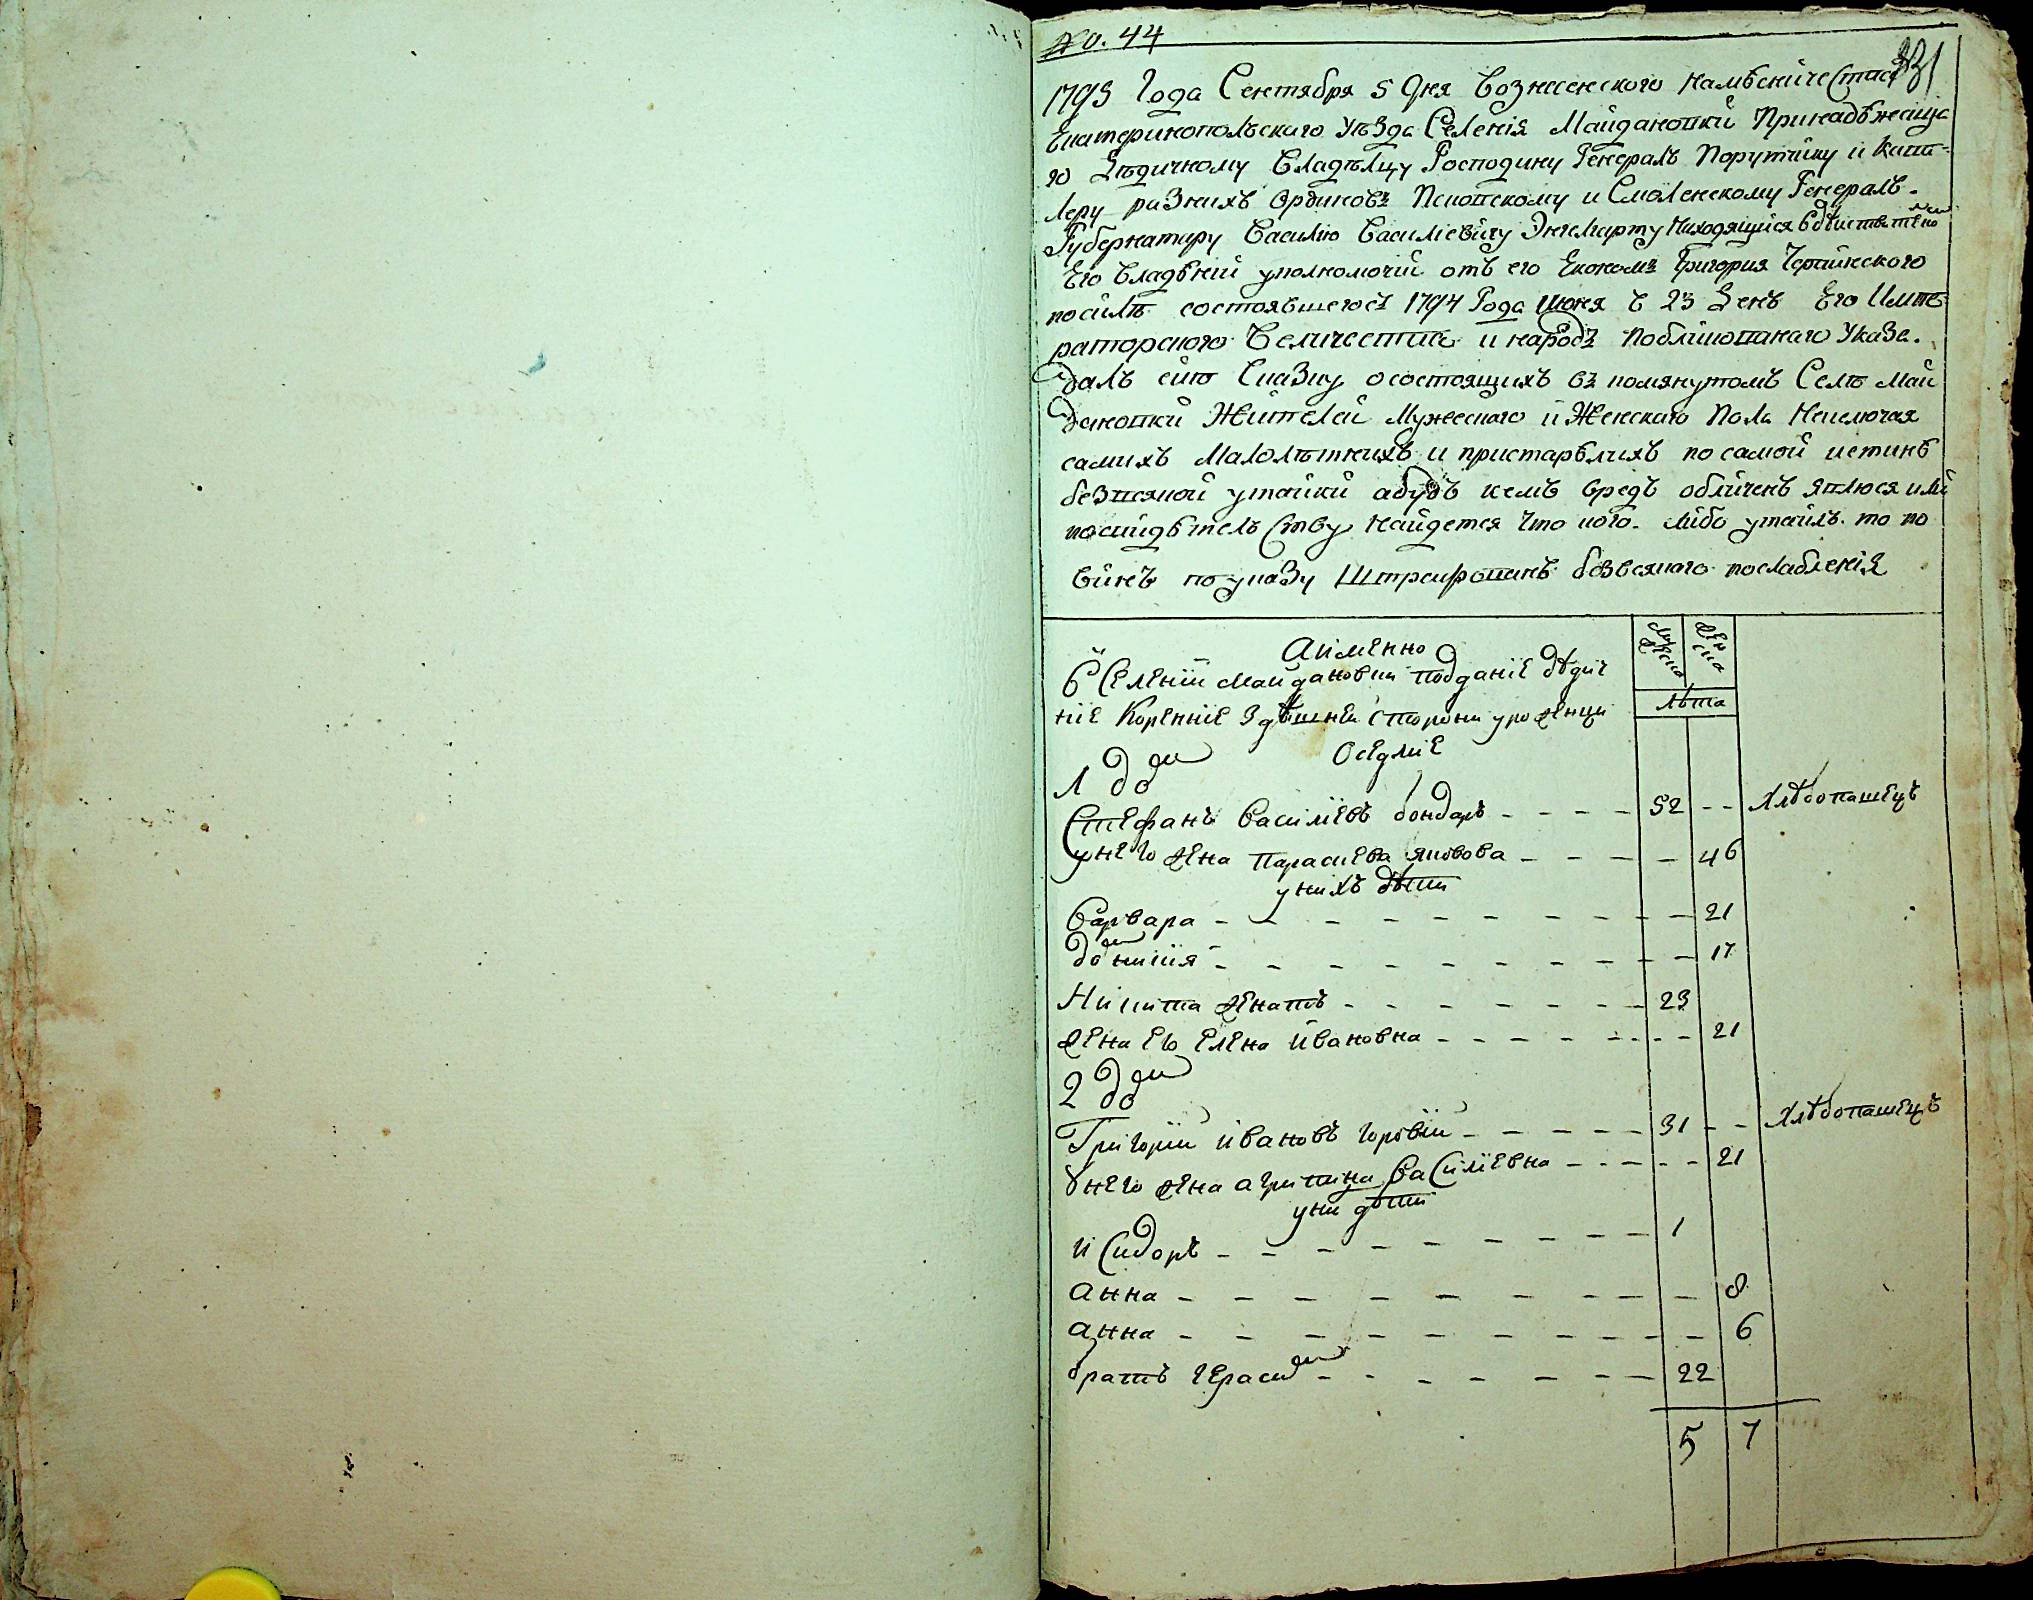 No. 44
1795 Года Сентября 5 дня Вознесенского намѣсничества
Екатеринопольского уѣзда Селенія Майдановки Принадѣжаща
го Дѣдичному Владѣлцу Господину Генералъ Порутчику и Кава-
леру разнихъ ординовъ Псковскому и Смоленскому Генералъ-
Губернатару Василію Василіевичу Энгелгарту Находящийся
Его владѣний уполномочий отъ его Економъ Григория
по силѣ состоявшегось 1794 Года июня в 23 денъ Его Импе-
раторского Величества и народъ поблиkованаго Указа.
далъ сию сказку о состоящихъ въ помянутомъ Селѣ Май
дановки Жителей Мужеского и Женского Пола Неисключая
самихъ Малолѣтнихъ и пристарѣлихъ по самой истинѣ
безвсякой утайки а будъ кемъ вредъ обличенъ явлюся или
по свидѣтельству найдется что кого-либо утаилъ то по
винъ по указу штрафованъ безвсякого послабленія
Аименно
В Селении Майдановки подданіе дѣдич
ніе Коренніе здѣшней сторони уроженци
Оседліе
мужеска
женска
лѣта
1 домъ
Стефанъ Василіевъ бондаръ - - - - 52 - - Хлѣбопашецъ
у него жена Параскева яковова - - - - 46
у нихъ дѣти
Варвара - - - - - - - - - - 21
домникия - - - - - - - - - - 17
Никита женатъ - - - - - - - 23
жена его Елена Ивановна - - - - - - - - 21
2 домъ
Григорий Ивановъ горовий - - - - - 31 - - Хлѣбопашецъ
у него жена агрипина Василіевна - - - - - 21
у них дѣти
Исидоръ - - - - - - - - - 1
анна - - - - - - - - - - 8
анна - - - - - - - - - - 6
братъ герасимъ - - - - - - - 22
5 7